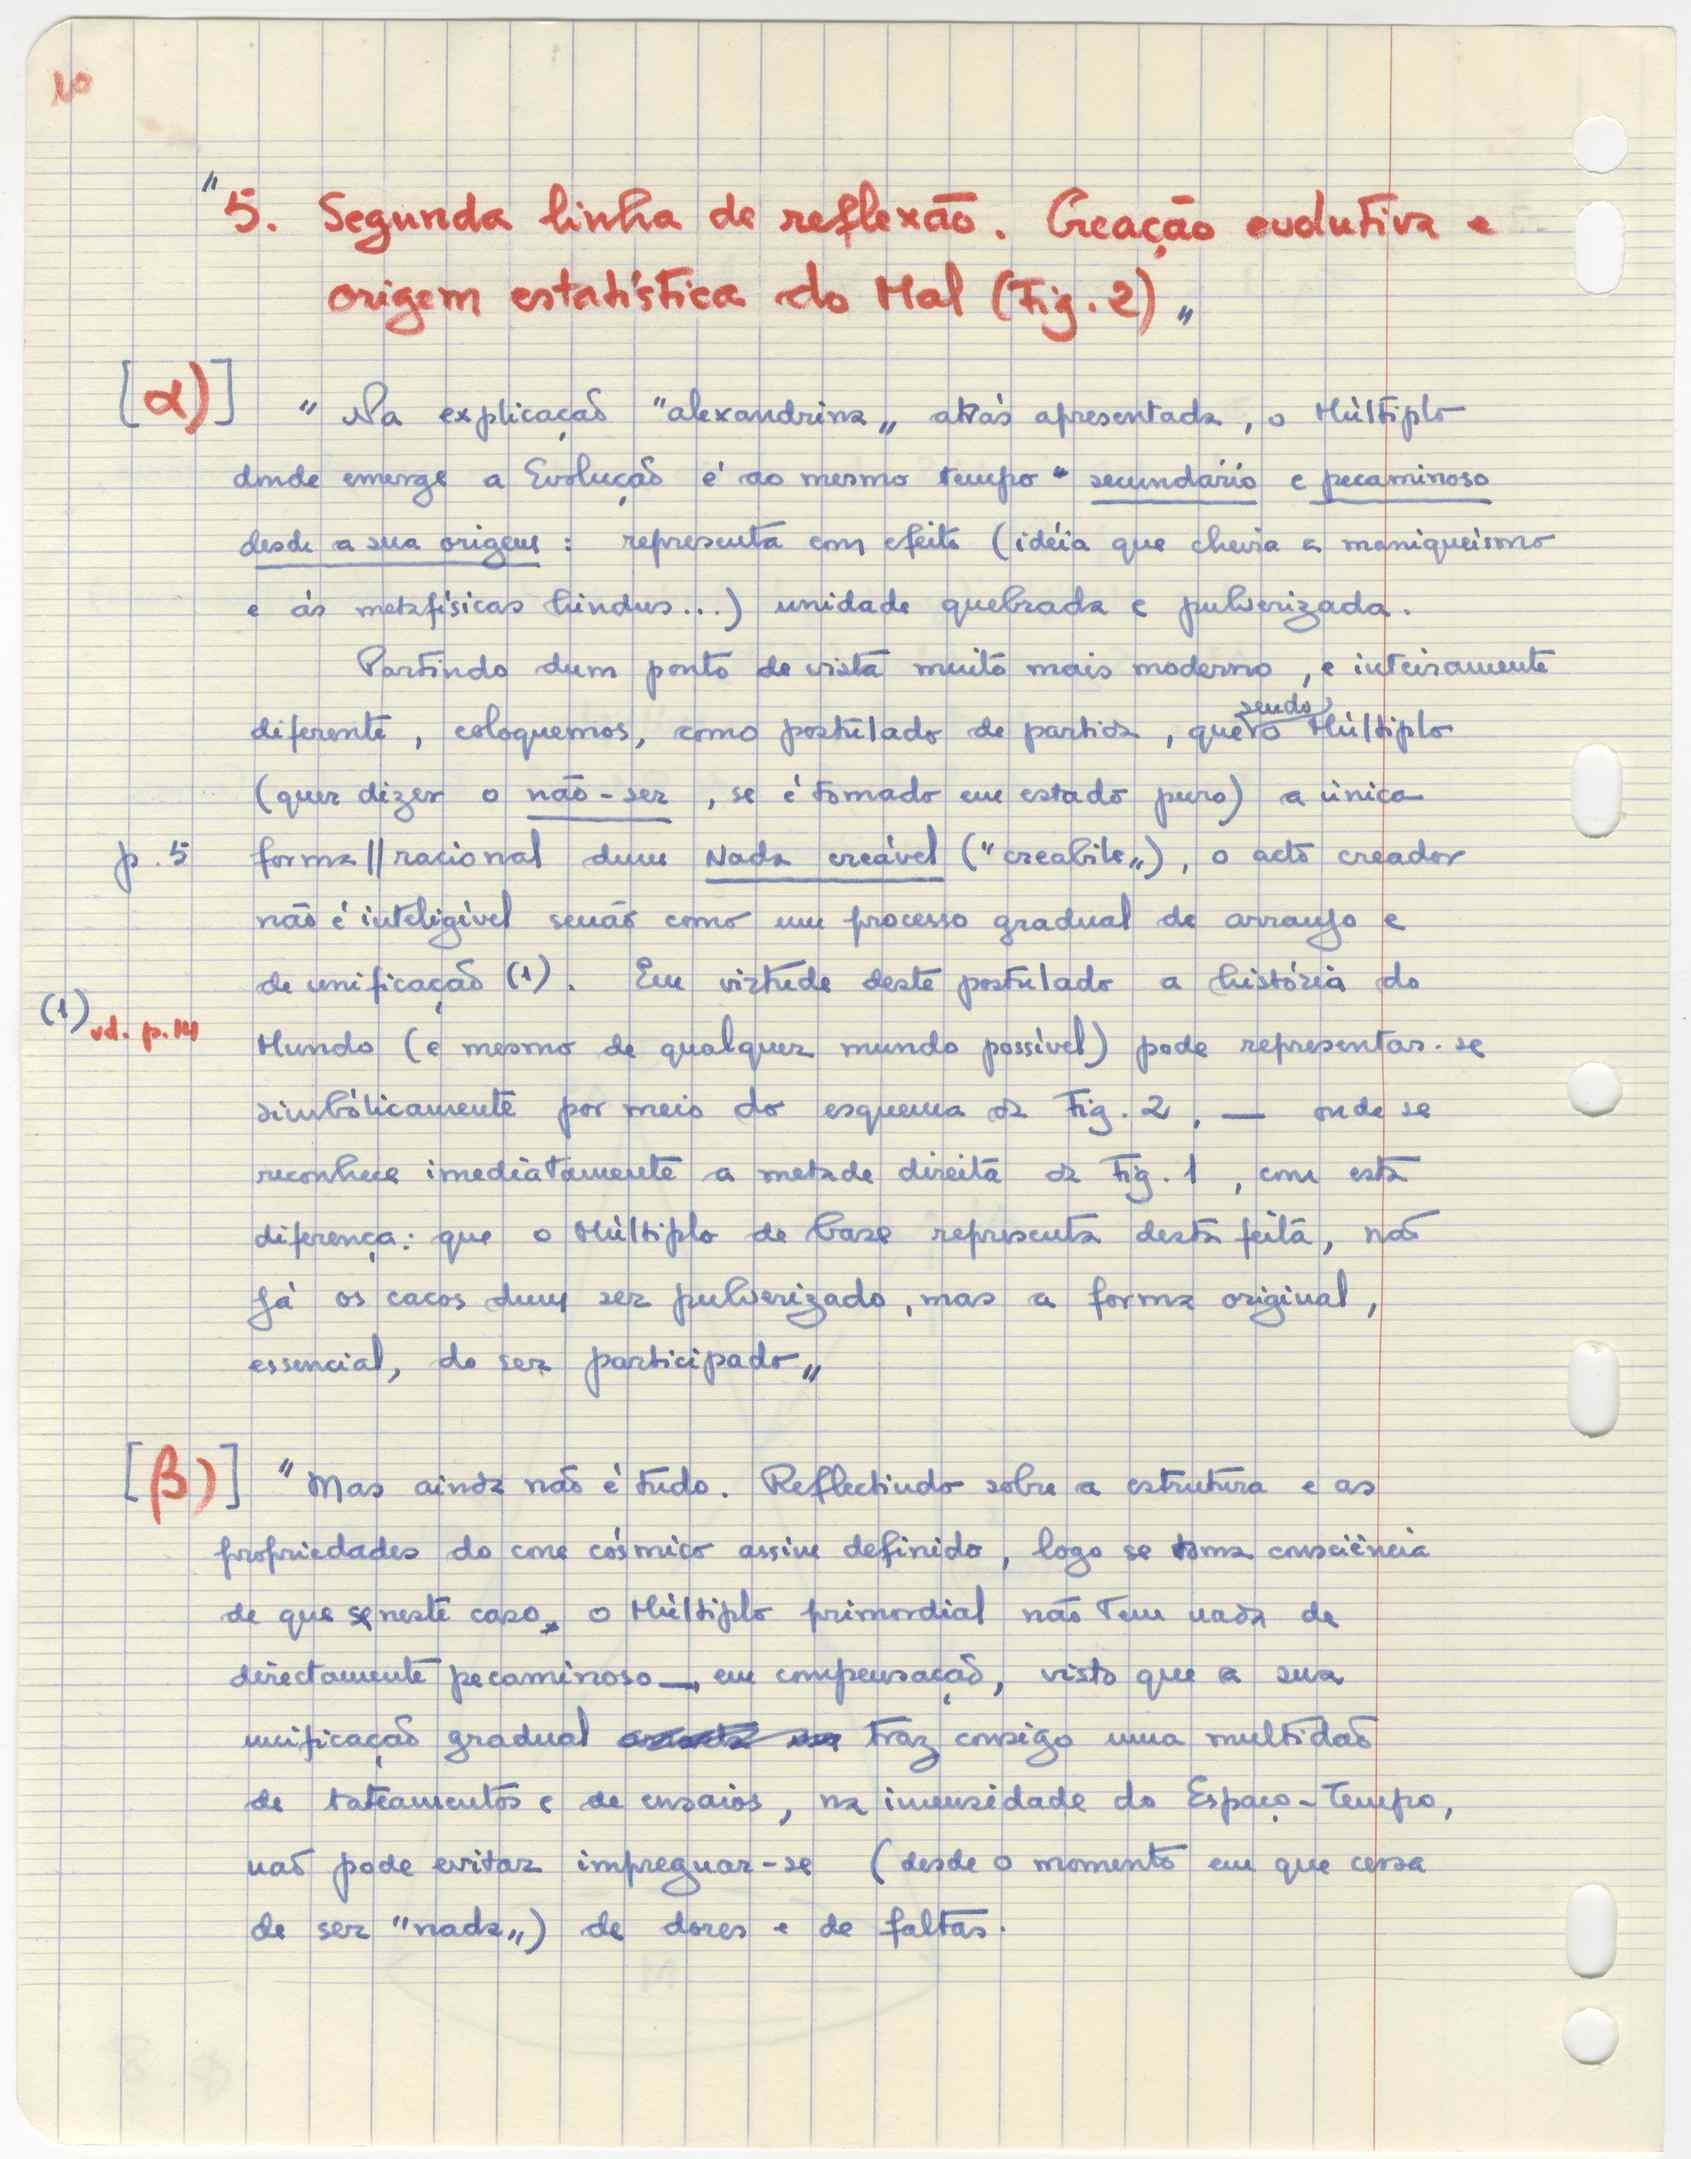 10
"5. Segunda linha de reflexão. Creação evolutiva e
origem estatística do Mal (Fig. 2)„
[α)] "Na explicação "alexandrina„ atrás apresentada, o Múltiplo
donde emerge a Evolução é ao mesmo tempo " secundário e pecaminoso
desde a sua origem: representa com efeito (idéia que cheira a maniqueísmo
e ás metafísicas hindus...) unidade quebrada e pulverizada.
Partindo dum ponto de vista muito mais moderno, e inteiramente
diferente, coloquemos, como postulado de partida, que sendo o Múltiplo
(quer dizer o não-ser, se é tomado em estado puro) a única
p. 5 forma || racional dum Nada creável ("creabile„), o acto creador
não é inteligível senão como um processo gradual de arranjo e
de unificação (1). Em virtude deste postulado a história do
(1) vd. p. 14
Mundo (e mesmo de qualquer mundo possível) pode representar-se
simbólicamente por meio do esquema da Fig. 2, — onde se
reconhece imediatamente a metade direita da Fig. 1, com esta
diferença: que o Múltiplo de base representa desta feita, não
já os cacos dum ser pulverizado, mas a forma original,
essencial, do ser participado„
[β)] "Mas ainda não é tudo. Reflectindo sobre a estrutura e as
propriedades do cone cósmico assim definido, logo se toma consciência
de que se neste caso, o Múltiplo primordial não tem nada de
directamente pecaminoso—, em compensação, visto que a sua
unificação gradual traz consigo uma multidão
de tateamentos e de ensaios, na imensidade do Espaço-Tempo,
não pode evitar impregnar-se (desde o momento em que cessa
de ser "nada„) de dores e de faltas.